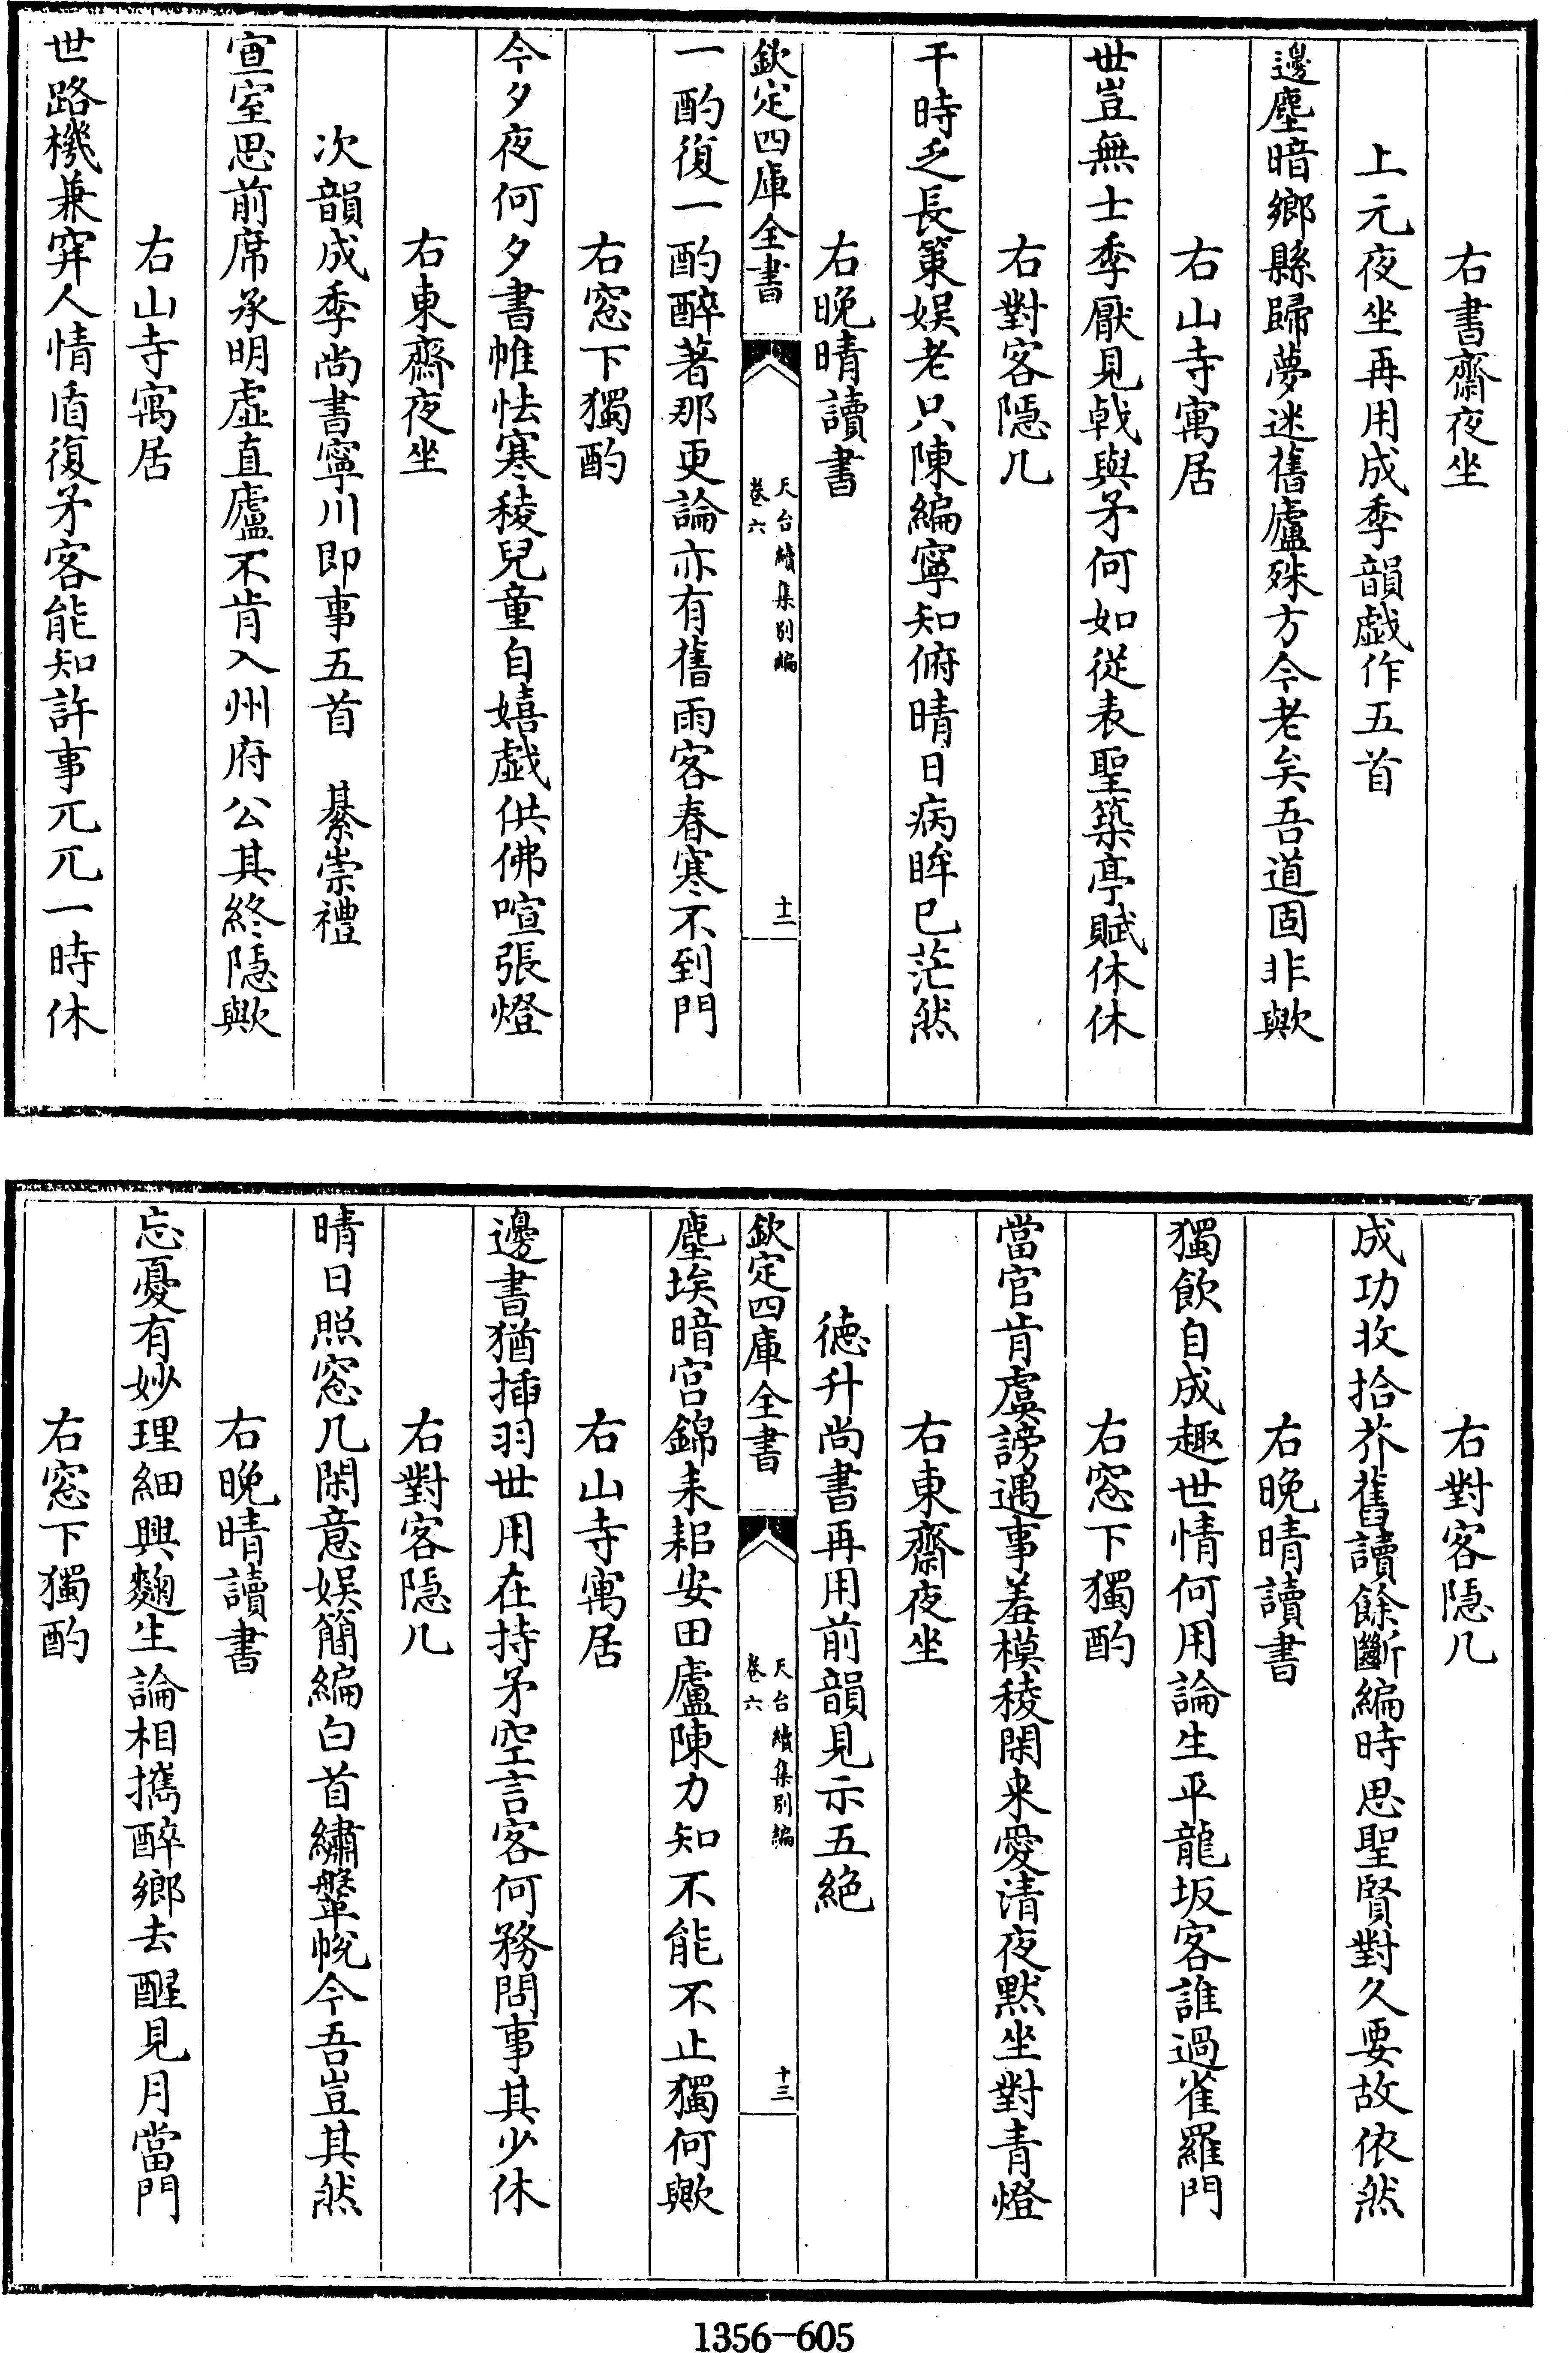 右書齋夜坐
上元夜坐再用成季韻戯作五首
邊塵暗鄉縣歸夢迷舊廬殊方今老矣吾道固非歟
右山寺寓居
世豈無士季厭見戟與矛何如從表聖築亭賦休休
右對客隠几
干時乏長策娱老只陳編寧知俯晴日病眸已茫然
右晩晴讀書
欽定四庫全書
天台續集别編
卷六
十二
一酌復一酌醉著那更論亦有舊雨客春寒不到門
右窓下獨酌
今夕夜何夕書帷怯寒稜兒童自嬉戯供佛喧張燈
右東齋夜坐
次韻成季尚書寧川即事五首　綦崇禮
宣室思前席承明虚直廬不肯入州府公其終隠歟
右山寺寓居
世路機兼穽人情盾復矛客能知許事兀兀一時休
右對客隠几
成功收拾芥舊讀餘斷編時思聖賢對久要故依然
右晩晴讀書
獨飲自成趣世情何用論生平龍坂客誰過雀羅門
右窓下獨酌
當官肯虞謗遇事羞模稜閑来愛清夜黙坐對青燈
右東齋夜坐
徳升尚書再用前韻見示五絶
欽定四庫全書
天台續集别編
卷六
十三
塵埃暗宫錦耒耜安田廬陳力知不能不止獨何歟
右山寺寓居
邊書猶插羽世用在持矛空言客何務問事其少休
右對客隠几
晴日照窓几閑意娱簡編白首繡鞶帨今吾豈其然
右晩晴讀書
忘憂有妙理細與麴生論相攜醉鄉去醒見月當門
右窓下獨酌
1356-605